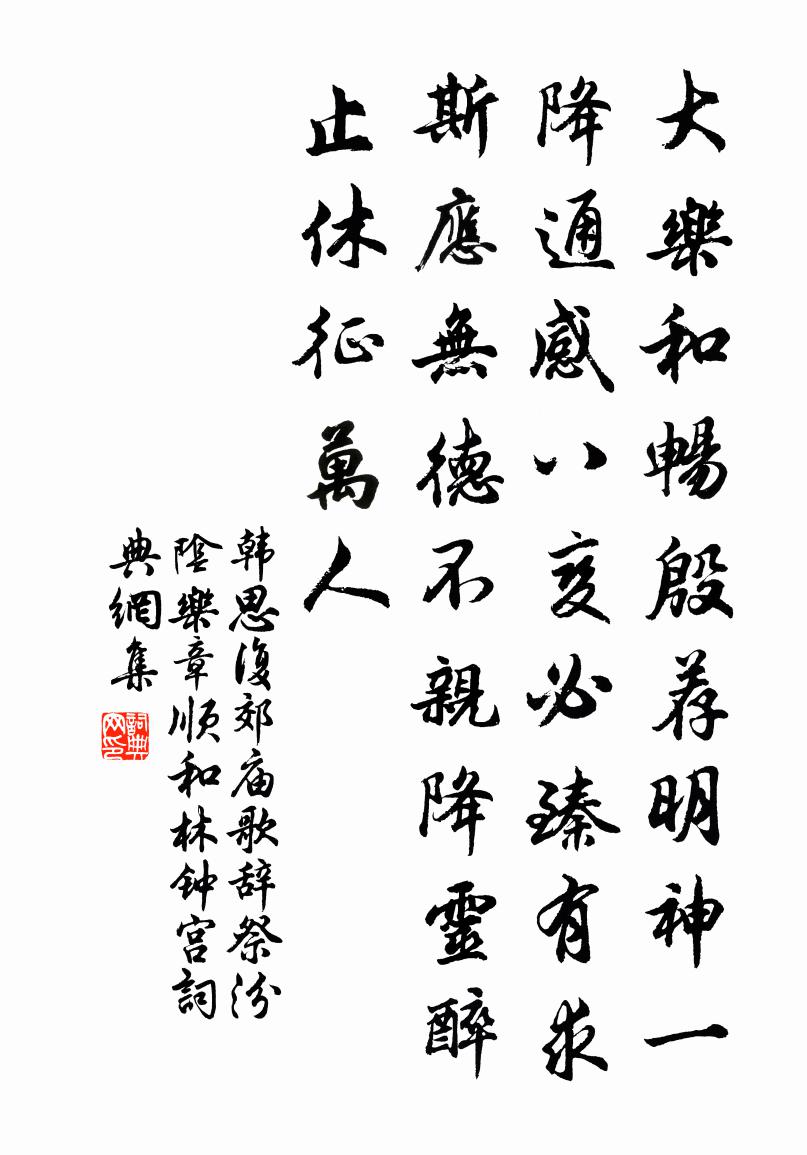 大樂和暢殷荐明神一
降通感八变必臻有求
斯應無德不親降靈醉
止休征萬人
韩思復郊庙歌辞祭汾
陰樂章顺和林钟宫詞
典網集
詞典
网印